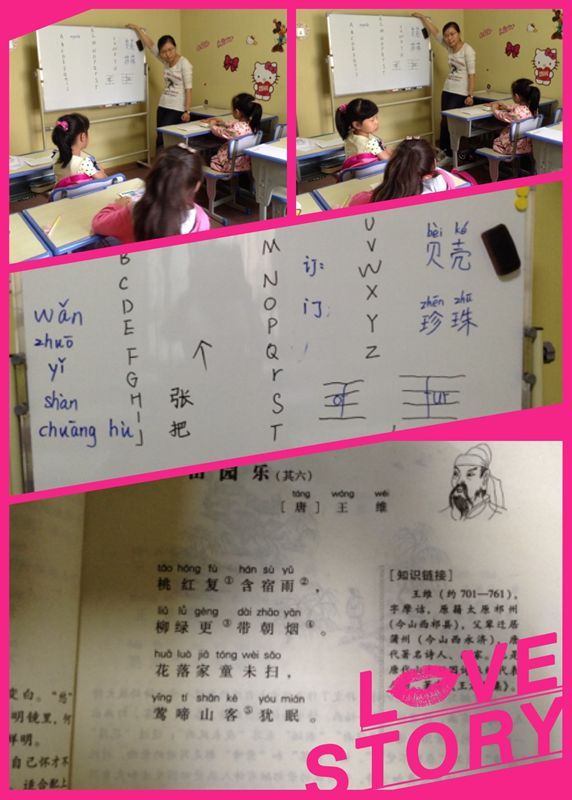 wǎn
zhuō
yǐ
shàn
chuāng hù
B
C
D
E
F
G
H
I
J
张
把
M
N
O
P
Q
r
S
T
U
V
W
X
Y
Z
bèi ké
贝壳
zhēn zhū
珍珠
ur
园乐(其六)
táng wáng wéi
[唐] 王维
táo hóng fù hán sù yǔ
桃红复①含宿雨②，
liǔ lǜ gèng dài zhāo yān
柳绿更③带朝烟④。
huā luò jiā tóng wèi sǎo
花落家童未扫，
yīng tí shān kè yóu mián
莺啼山客⑤犹眠。
[知识链接]
王维（约701—761），
字摩诘，原籍太原祁州
（今山西祁县），父辈迁居
蒲州（今山西永济），唐
代著名诗人、家。是
唐代诗代表
变白。“愁”
明镜里，何
鲜明。
自己怀才不
适合配上
LOVE
STORY